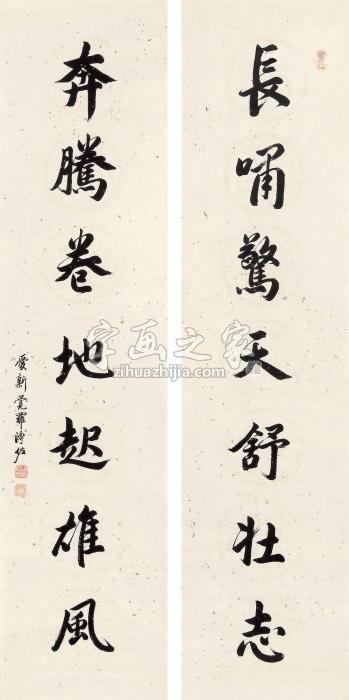 長嘯驚天舒壯志
奔騰卷地起雄風
愛新覺羅溥佐
字画之家
zihuazhijia.com